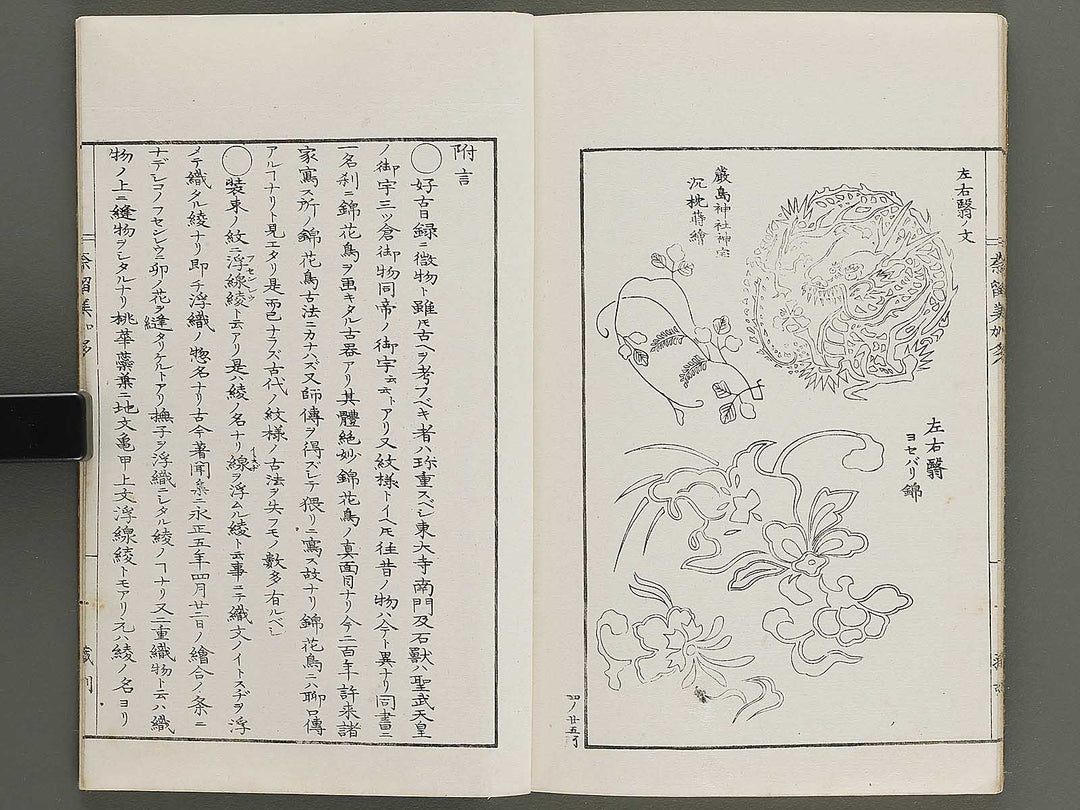 左右翳ノ文
嚴島神社神宝
沉枕蒔繪
左右翳
ヨセバリ錦
四ノ廿五ノ
附言
◯好古日録ニ微物ト雖𪜈古ヘヲ考フベキ者ハ珎重スベシ東大寺南門及石獸ハ聖武天皇
ノ御宇三ツ倉御物同帝ノ御宇云云トアリ又紋様トイヘ𪜈往昔ノ物ハ今ト異ナリ同書ニ
一名刹ニ錦花鳥ヲ画キタル古器アリ其體絶妙錦花鳥ノ真面目ナリ今二百年許来諸
家寫ス所ノ錦花鳥古法ニカナハズ又師傳ヲ得ズシテ猥リニ寫ス故ナリ錦花鳥ニハ聊口傳
アルヿナリト見エタリ是而已ナラズ古代ノ紋様ノ古法ヲ失フモノ數多有ルベシ
◯装束ノ紋ニ浮線綾ト云アリ是ハ綾ノ名ナリ線ヲ浮ムル綾ト云事ニテ織文ノイトスヂヲ浮
フセンレウ
イトスヂ
メテ織タル綾ナリ即チ浮織ノ惣名ナリ古今著聞集ニ永正五年四月廿二日ノ繪合ノ条ニ
ナデシコノフセンレウニ卯ノ花ヲ縫タリケルトアリ撫子ヲ浮織ニシタル綾ノヿナリ又二重織物ト云ハ織
物ノ上ニ縫物ヲシタルナリ桃華蘂葉ニ地文亀甲上文浮線綾トモアリ元ハ綾ノ名ヨリ